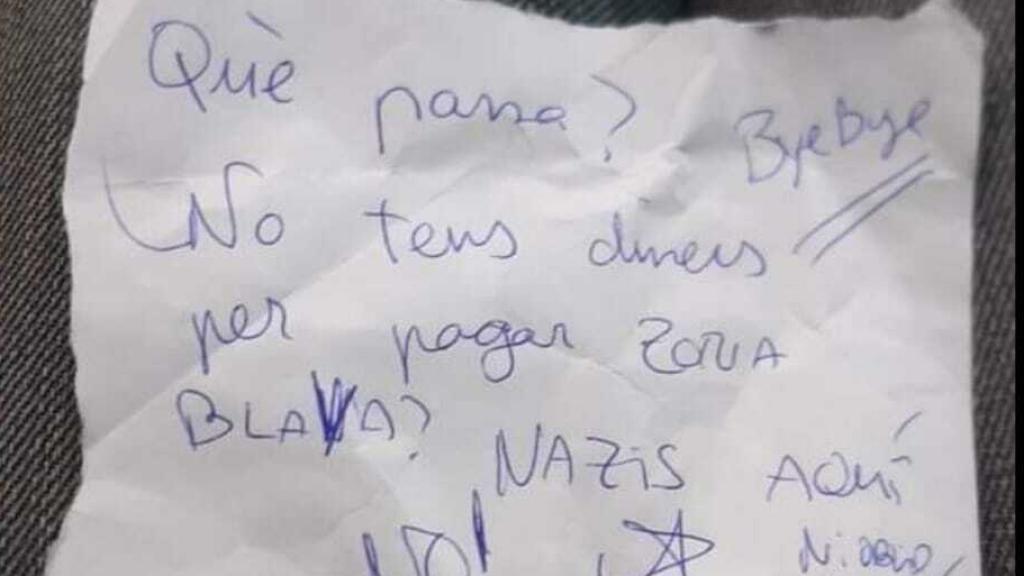 Què passa?
Bye bye
No tens diners
per pagar ZONA
BLAVA?
NAZIS AQUÍ
NO!